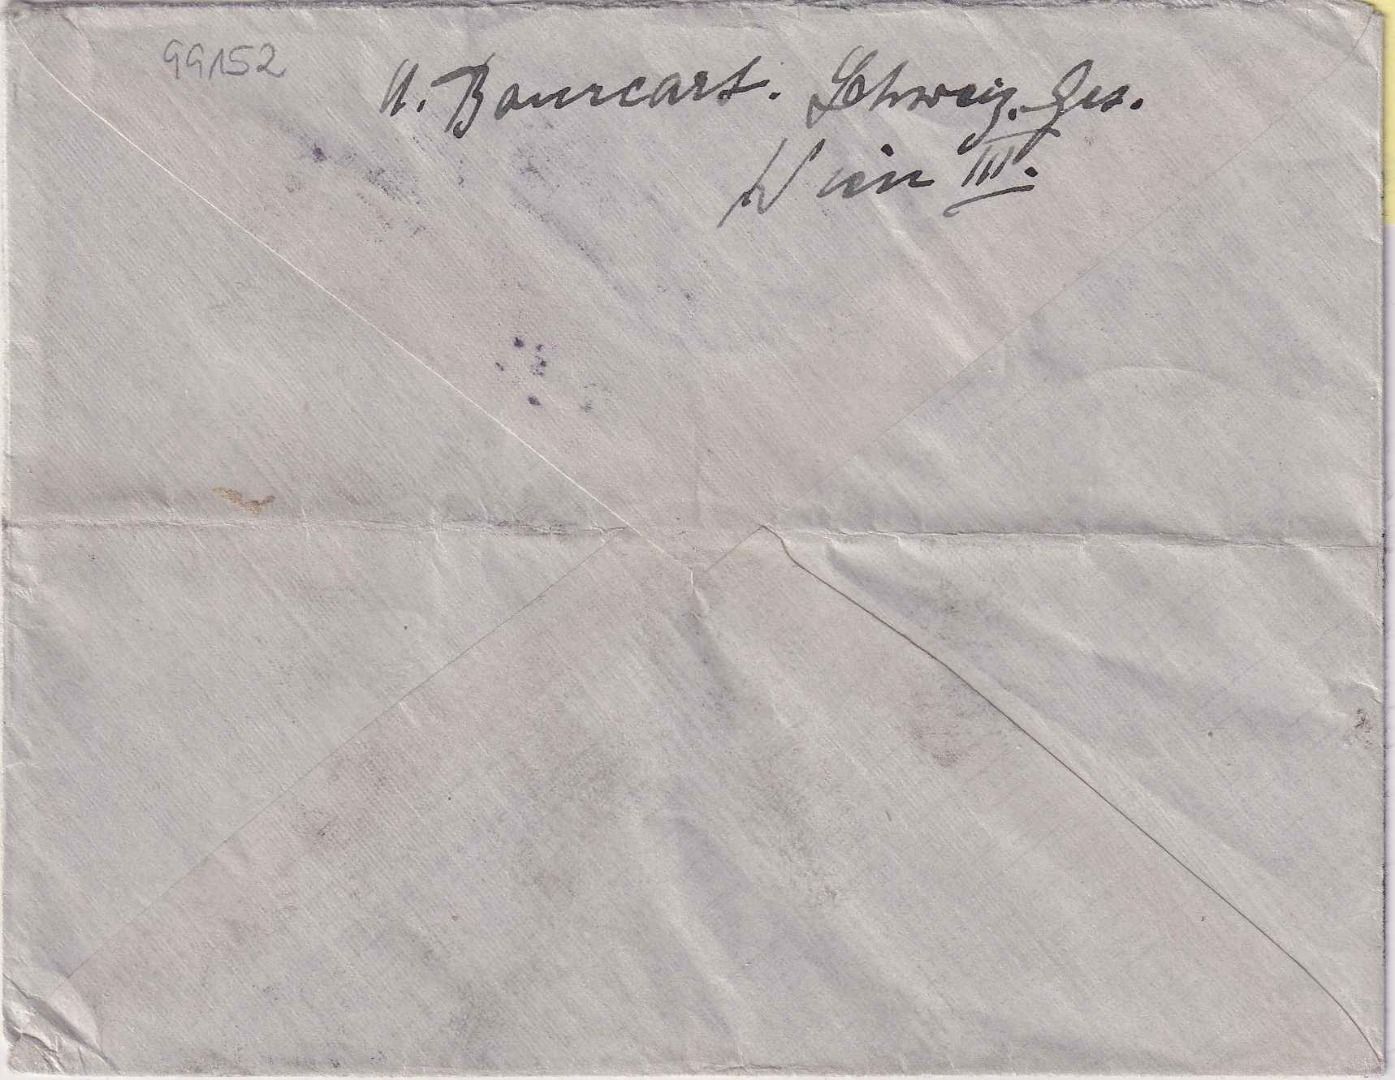 99152
A. Bourcart. Schweiz. Ges.
Wien III.